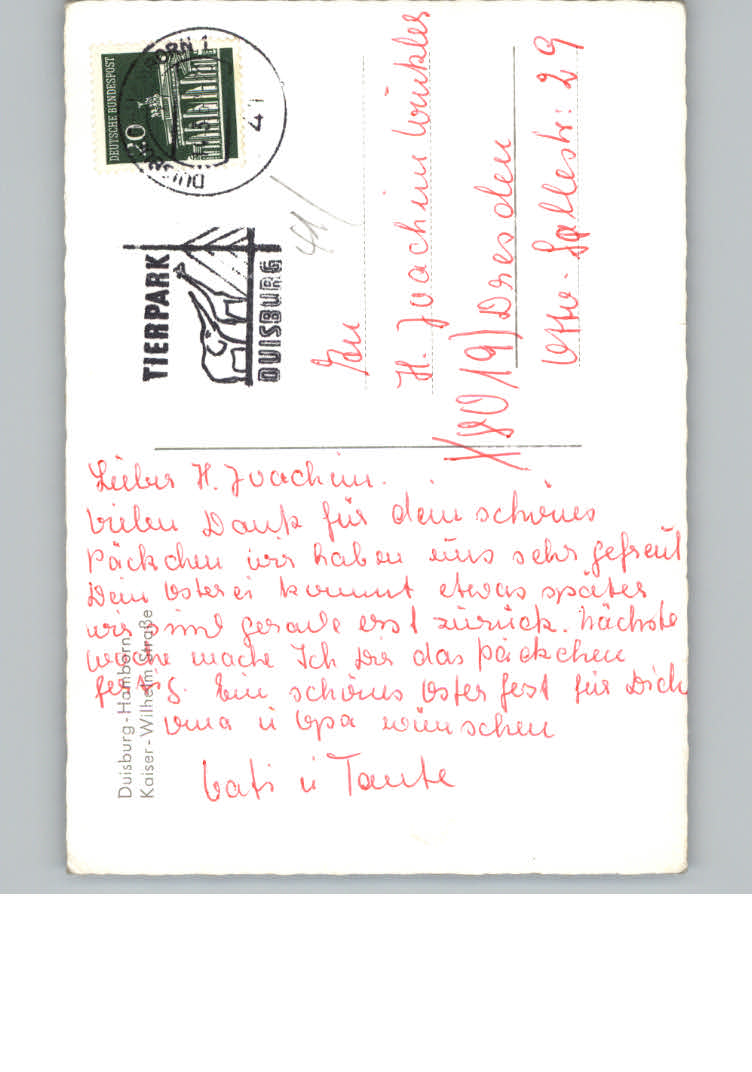 DEUTSCHE BUNDESPOST
20
TIERPARK
DUISBURG
41
An
H. Joachim Winkler
X8019) Dresden
Otto-Gallestr: 29
Lieber H. Joachim.
Vielen Dank für dein schönes
Päckchen wir haben uns sehr gefreut
Dein Osterei kommt etwas später
wir sind gerade erst zurück. Nächste
Woche mache Ich Dir das päckchen
fertig. Ein schönes Osterfest für Dich
Oma u Opa wünschen
Vati u Tante
Duisburg-Hamborn
Kaiser-Wilhelm Straße